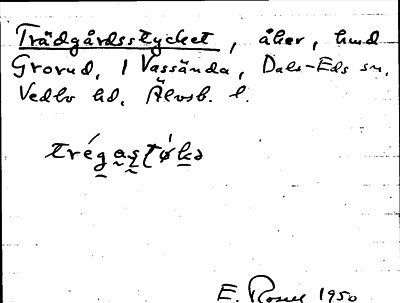 Trädgårdsstycket, åker, hmd
Grorud, 1 Vassända, Dals-Eds sn.
Vedbo hd. Älvsb. l.
trégastǿkə
E. Rosell 1950